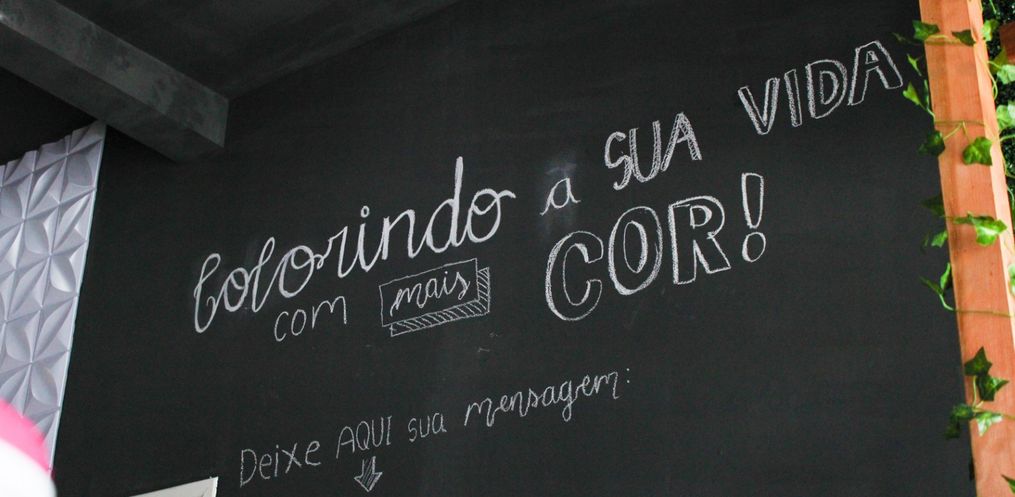 Colorindo a SUA VIDA
com mais COR!
Deixe AQUI sua mensagem: